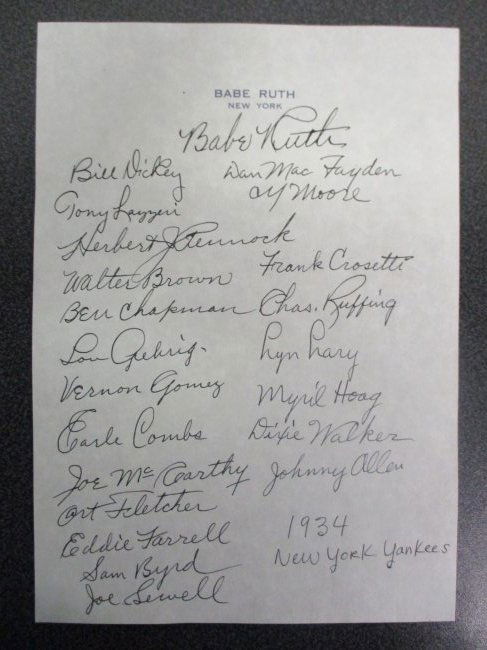 BABE RUTH
NEW YORK
Babe Ruth
Bill Dickey
Dan MacFayden
Cy Moore
Tony Lazzeri
Herbert J Pennock
Walter Brown
Frank Crosetti
Ben Chapman
Chas. Ruffing
Lou Gehrig.
Lyn Lary
Vernon Gomez
Myril Hoag
Earle Combs
Dixie Walker
Joe McCarthy
Johnny Allen
Art Fletcher
Eddie Farrell
1934
Sam Byrd
New York Yankees
Joe Sewell